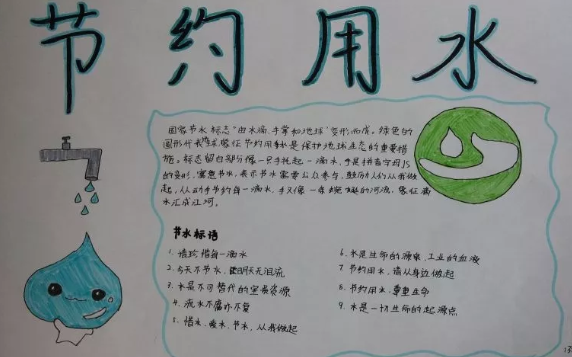 节约用水
国家节水标志"由水滴、手掌和地球"变形而成。绿色的
圆形代表地球,象征节约用水是保护地球生态的重要措
施。标志留白部分像一只手托起一滴水,手是拼音字母JS
的变形,寓意节水,表示节水需要公众参与,鼓励人们从我做
起,人人动手节约每一滴水,手又像一条蜿蜒的河流,象征滴
水汇成江河。
节水标语
1. 请珍惜每一滴水
2. 今天不节水,明天无泪流
3. 水是不可替代的宝贵资源
4. 流水不腐亦不复
5. 惜水、爱水、节水,从我做起
6. 水是生命的源泉、工业的血液
7. 节约用水,请从身边做起
8. 节约用水,尊重生命
9. 水是一切生命的起源点